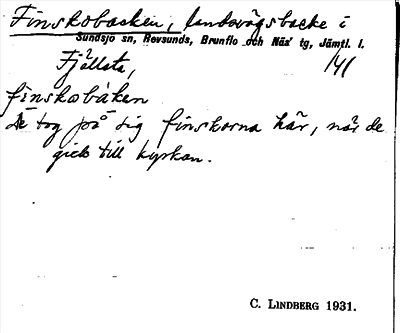 Finskobacken, landsvägsbacke i
Sundsjö sn, Revsunds, Brunflo och Näs' tg, Jämtl. l.
Fjällsta, 141
finskobáken
De tog på sig finskorna här, när de
gick till kyrkan.
C. LINDBERG 1931.